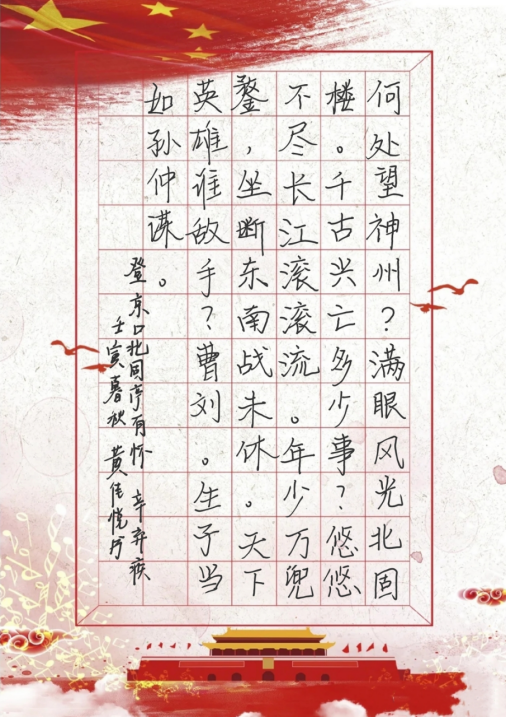 何处望神州?满眼风光北固
楼。千古兴亡多少事?悠悠
不尽长江滚滚流。年少万兜
鍪,坐断东南战未休。天下
英雄谁敌手?曹刘。生子当
如孙仲谋。
登京口北固亭有怀 辛弃疾
壬寅暮秋 黄佳悦书